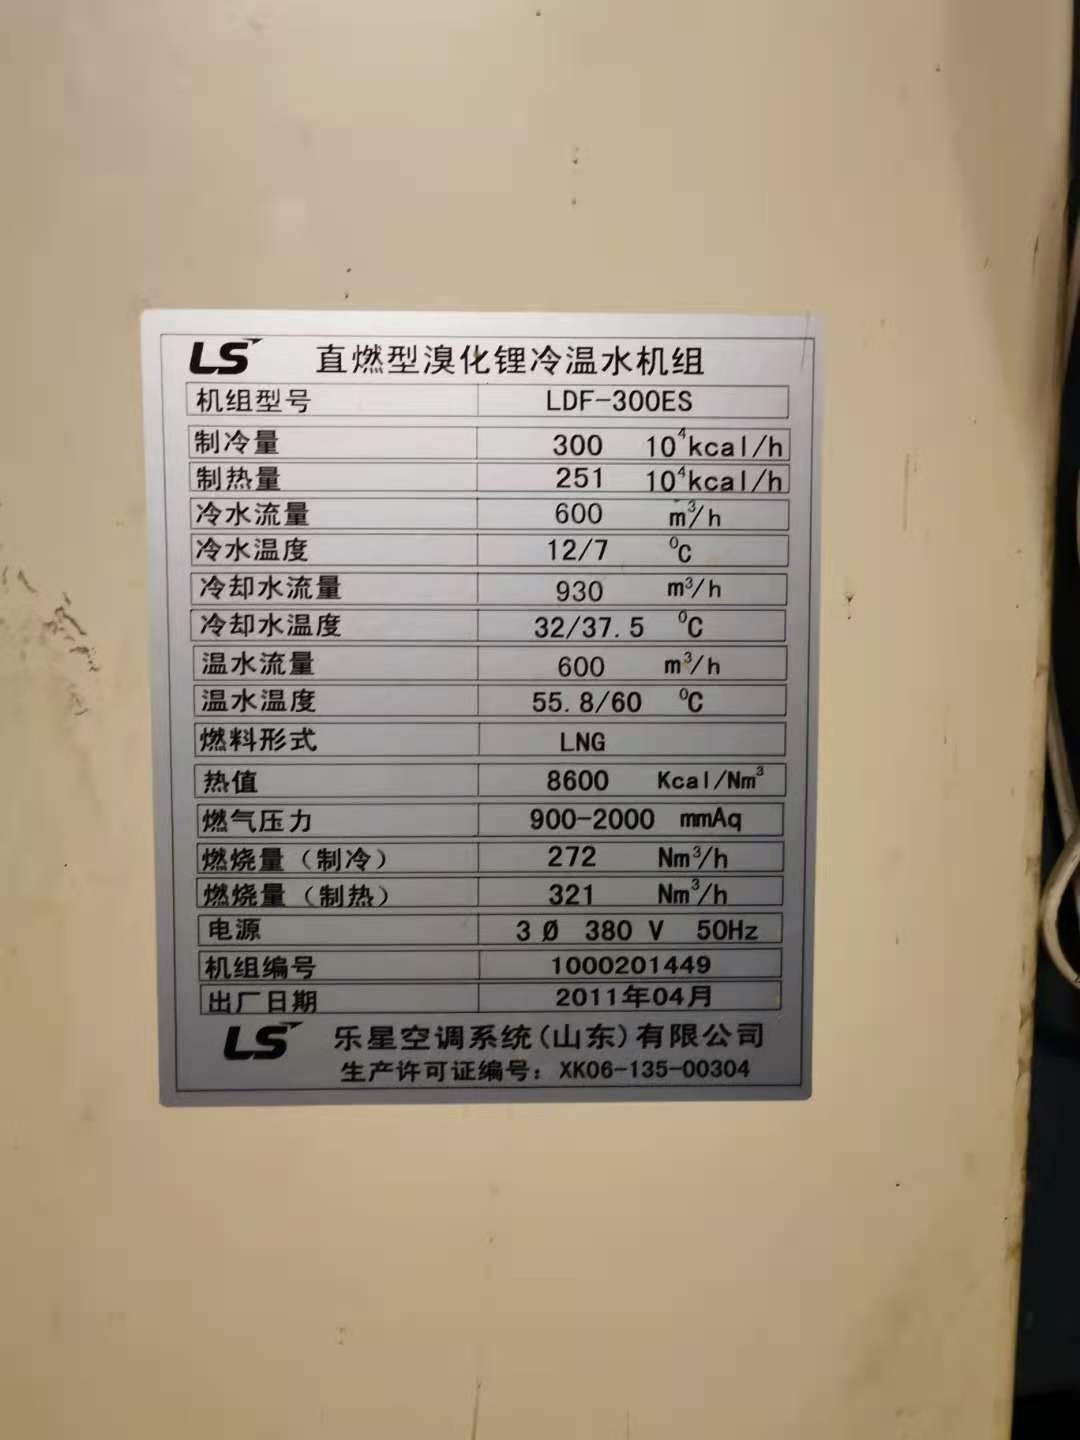 LS 直燃型溴化锂冷温水机组
机组型号 LDF-300ES
制冷量 300 10⁴kcal/h
制热量 251 10⁴kcal/h
冷水流量 600 m³/h
冷水温度 12/7 ⁰C
冷却水流量 930 m³/h
冷却水温度 32/37.5 ⁰C
温水流量 600 m³/h
温水温度 55.8/60 ⁰C
燃料形式 LNG
热值 8600 Kcal/Nm³
燃气压力 900-2000 mmAq
燃烧量（制冷） 272 Nm³/h
燃烧量（制热） 321 Nm³/h
电源 3 Ø 380 V 50Hz
机组编号 1000201449
出厂日期 2011年04月
LS 乐星空调系统(山东)有限公司
生产许可证编号：XK06-135-00304